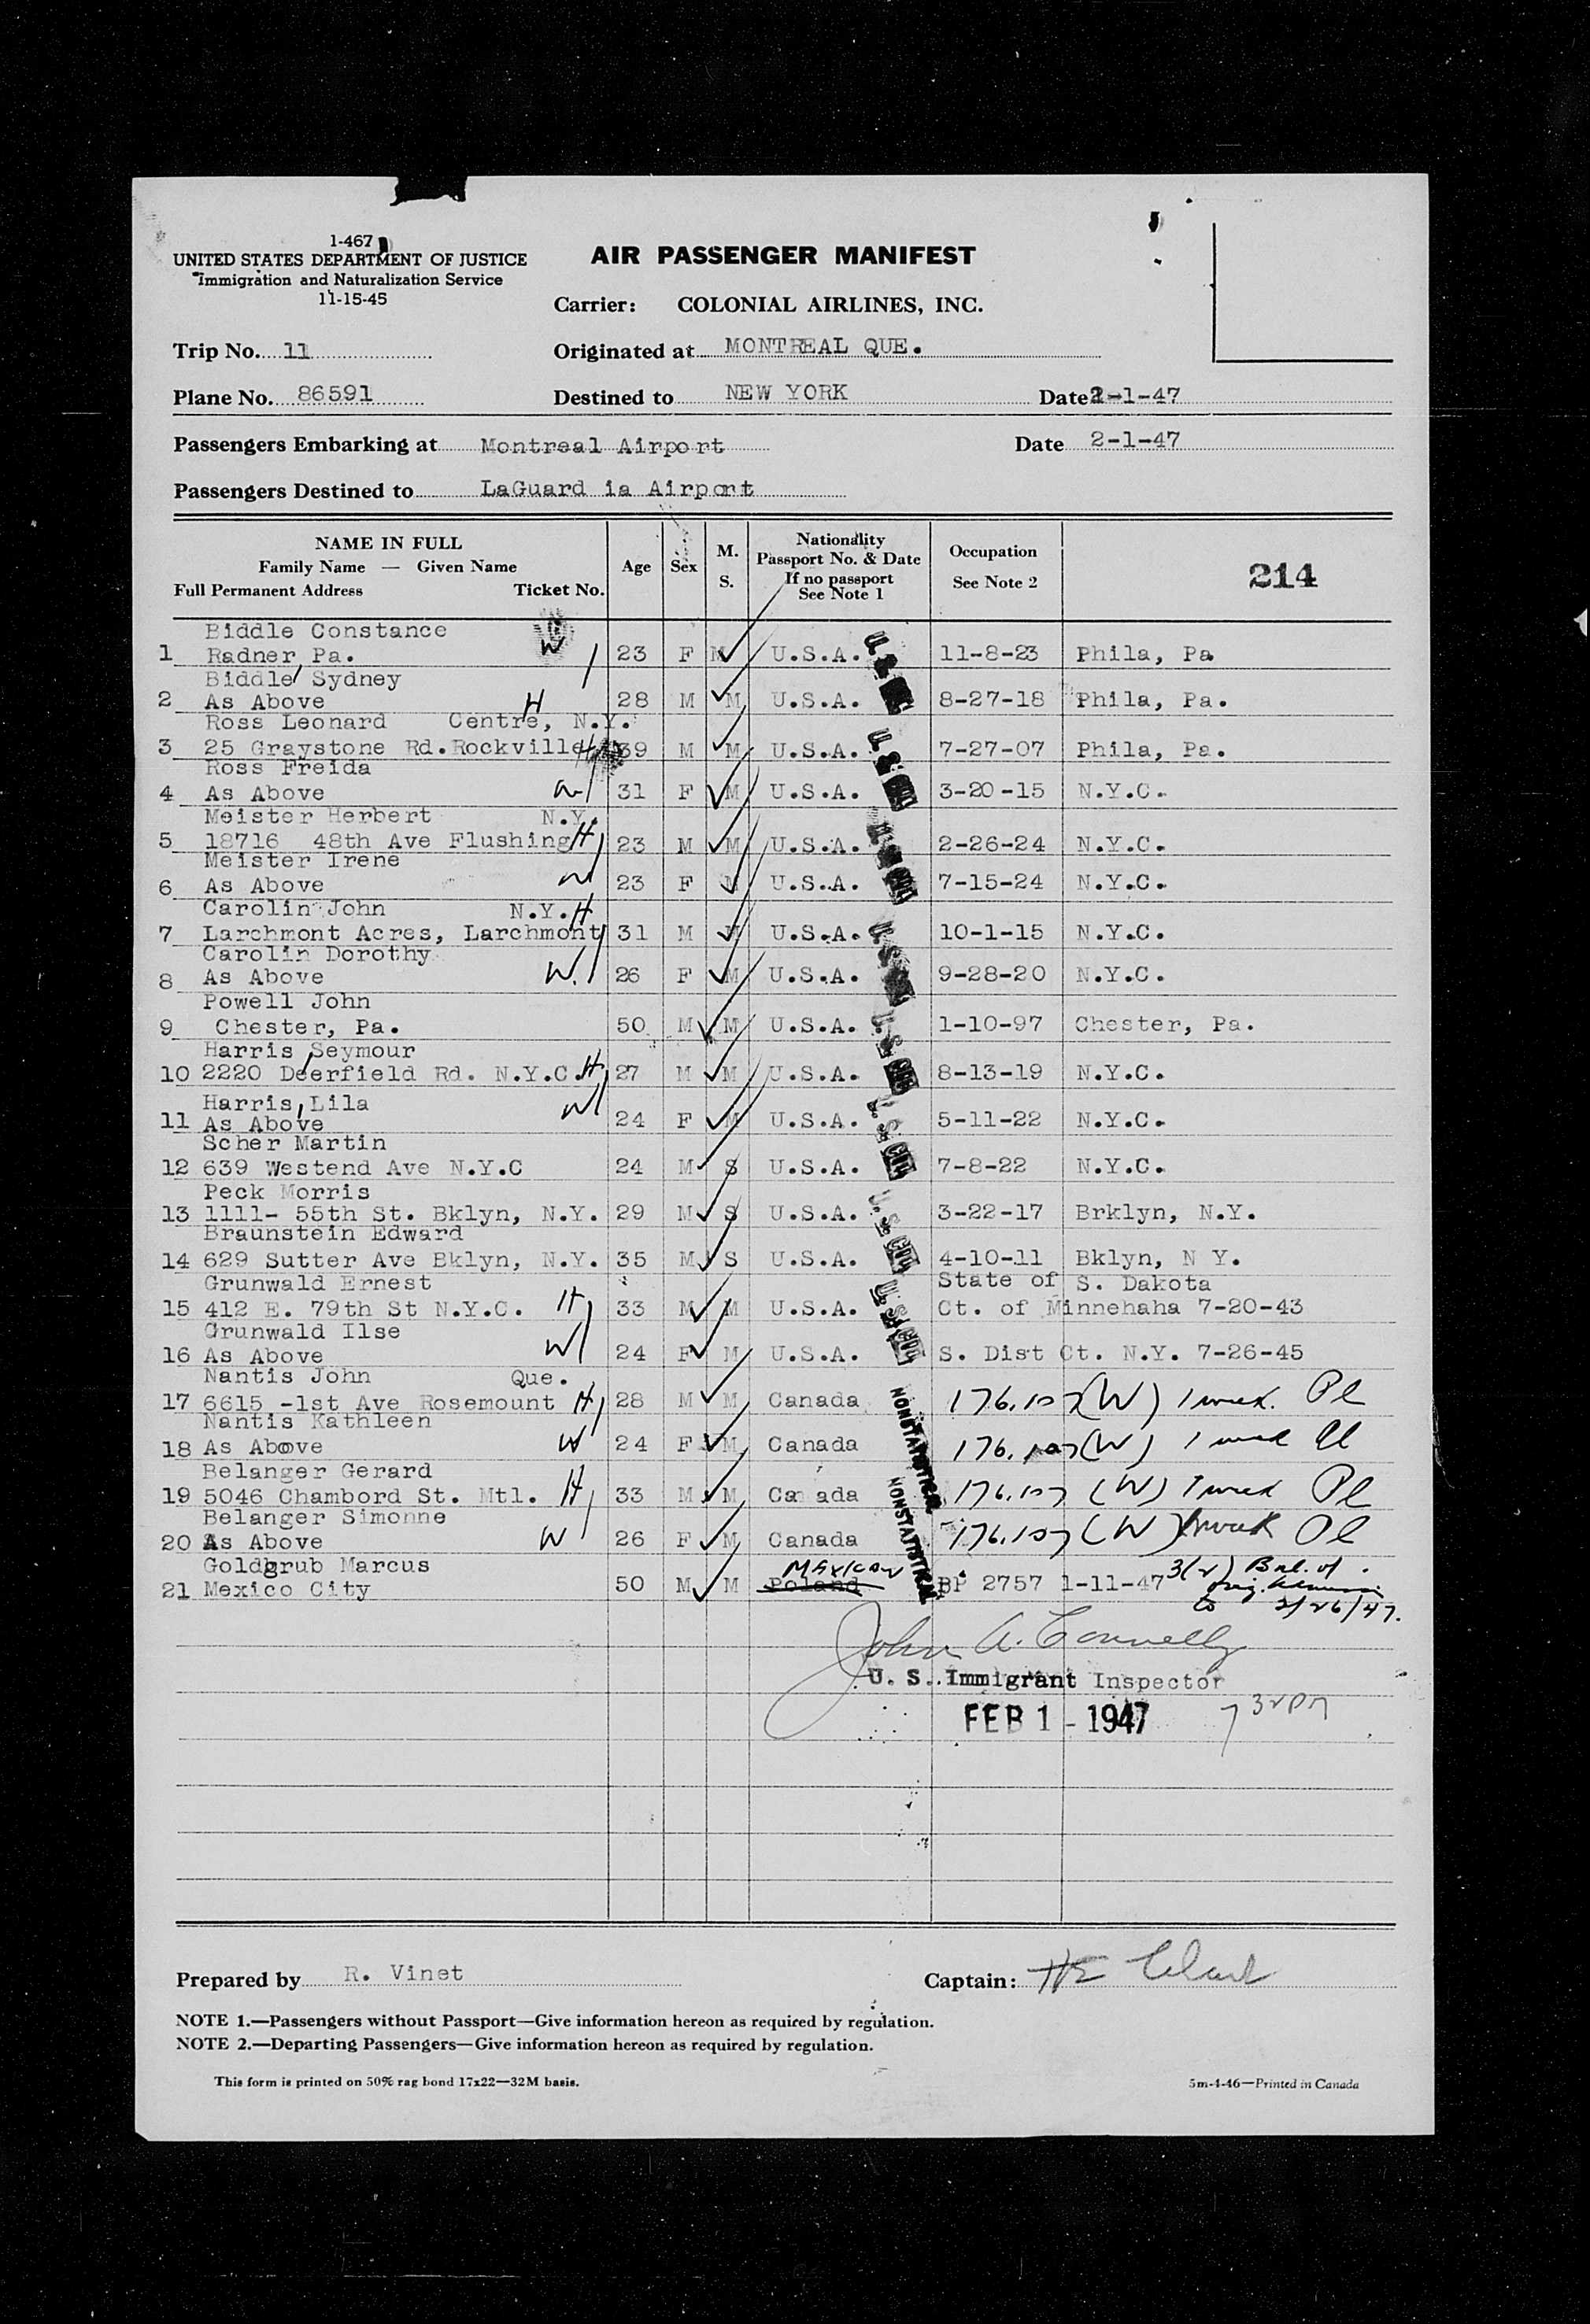 1-467
UNITED STATES DEPARTMENT OF JUSTICE
Immigration and Naturalization Service
11-15-45
AIR PASSENGER MANIFEST
Carrier: COLONIAL AIRLINES, INC.
Trip No. 11 Originated at MONTREAL QUE.
Plane No. 86591 Destined to NEW YORK Date 2-1-47
Passengers Embarking at Montreal Airport Date 2-1-47
Passengers Destined to LaGuard ia Airport
NAME IN FULL
Family Name — Given Name
Full Permanent Address Ticket No.
Age
Sex
M.
S.
Nationality
Passport No. & Date
If no passport
See Note 1
Occupation
See Note 2
214
Biddle Constance
1 Radner, Pa. W 23 F M U.S.A. 11-8-23 Phila, Pa
Biddle Sydney
2 As Above H 28 M M U.S.A. 8-27-18 Phila, Pa.
Ross Leonard Centre, N.Y.
3 25 Graystone Rd.Rockville H 39 M M U.S.A. 7-27-07 Phila, Pa.
Ross Freida
4 As Above W 31 F M U.S.A. 3-20-15 N.Y.C.
Meister Herbert N.Y.
5 18716 48th Ave Flushing H 23 M M U.S.A. 2-26-24 N.Y.C.
Meister Irene
6 As Above W 23 F M U.S.A. 7-15-24 N.Y.C.
Carolin John N.Y. H
7 Larchmont Acres, Larchmont 31 M M U.S.A. 10-1-15 N.Y.C.
Carolin Dorothy
8 As Above W. 26 F M U.S.A. 9-28-20 N.Y.C.
Powell John
9 Chester, Pa. 50 M M U.S.A. 1-10-97 Chester, Pa.
Harris Seymour
10 2220 Deerfield Rd. N.Y.C. H 27 M M U.S.A. 8-13-19 N.Y.C.
Harris, Lila
11 As Above W 24 F M U.S.A. 5-11-22 N.Y.C.
Scher Martin
12 639 Westend Ave N.Y.C 24 M S U.S.A. 7-8-22 N.Y.C.
Peck Morris
13 1111- 55th St. Bklyn, N.Y. 29 M S U.S.A. 3-22-17 Brklyn, N.Y.
Braunstein Edward
14 629 Sutter Ave Bklyn, N.Y. 35 M S U.S.A. 4-10-11 Bklyn, N Y.
Grunwald Ernest State of S. Dakota
15 412 E. 79th St N.Y.C. H 33 M M U.S.A. Ct. of Minnehaha 7-20-43
Grunwald Ilse
16 As Above W 24 F M U.S.A. S. Dist Ct. N.Y. 7-26-45
Nantis John Que.
17 6615 -1st Ave Rosemount H 28 M M Canada NONSTATISTICAL 176.107 (W) 1 week. Pl
Nantis Kathleen
18 As Above W 24 F M Canada 176.107 (W) 1 week Pl
Belanger Gerard
19 5046 Chambord St. Mtl. H 33 M M Ca ada NONSTATISTICAL 176.107 (W) 1 week Pl
Belanger Simonne
20 As Above W 26 F M Canada 176.107 (W) 1 week Pl
Goldgrub Marcus Mexican
21 Mexico City 50 M M Poland BP 2757 1-11-47 3(2) Bal. of
orig.
to 2/26/47.
John A. Connelly
U. S. Immigrant Inspector
FEB 1 - 1947
Prepared by R. Vinet Captain: HE Clark
NOTE 1.—Passengers without Passport—Give information hereon as required by regulation.
NOTE 2.—Departing Passengers—Give information hereon as required by regulation.
This form is printed on 50% rag bond 17x22—32M basis. 5m-4-46—Printed in Canada